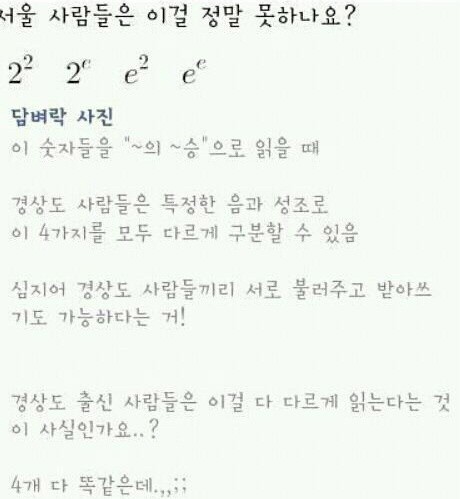 서울 사람들은 이걸 정말 못하나요?
2² 2ᵉ e² eᵉ
답벼락 사진
이 숫자들을 "~의 ~승"으로 읽을 때
경상도 사람들은 특정한 음과 성조로
이 4가지를 모두 다르게 구분할 수 있음
심지어 경상도 사람들끼리 서로 불러주고 받아쓰
기도 가능하다는 거!
경상도 출신 사람들은 이걸 다 다르게 읽는다는 것
이 사실인가요..?
4개 다 똑같은데.,,;;